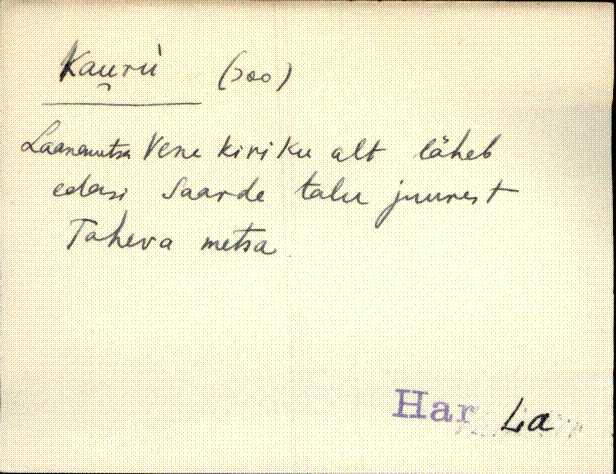 Kau̯rù (soo)
Laanemetsa Vene kiriku alt läheb
edasi Saarde talu juurest
Taheva metsa
Har La